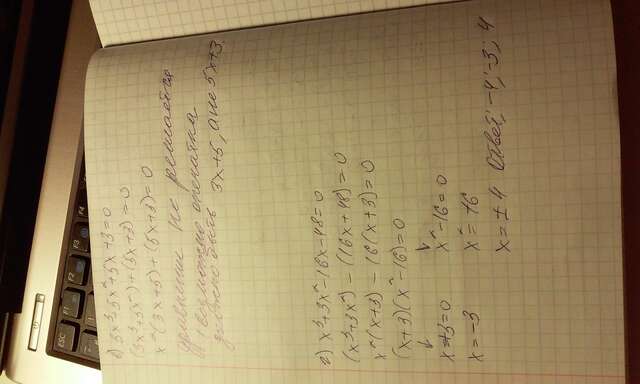 ESC
F1
F2
F3
F4
в) 3x³+5x²+5x+3=0
(3x³+5x²)+(5x+3)=0
x²(3x+5)+(5x+3)=0
уравнение не решается
(возможно опечатка
должно быть 3x+5, а не 5x+3.
г) x³+3x²-16x-48=0
(x³+3x²)-(16x+48)=0
x²(x+3)-16(x+3)=0
(x+3)(x²-16)=0
↓ ↓
x+3=0 x²-16=0
x=-3 x²=16
x=±4 Ответ: -4; -3; 4